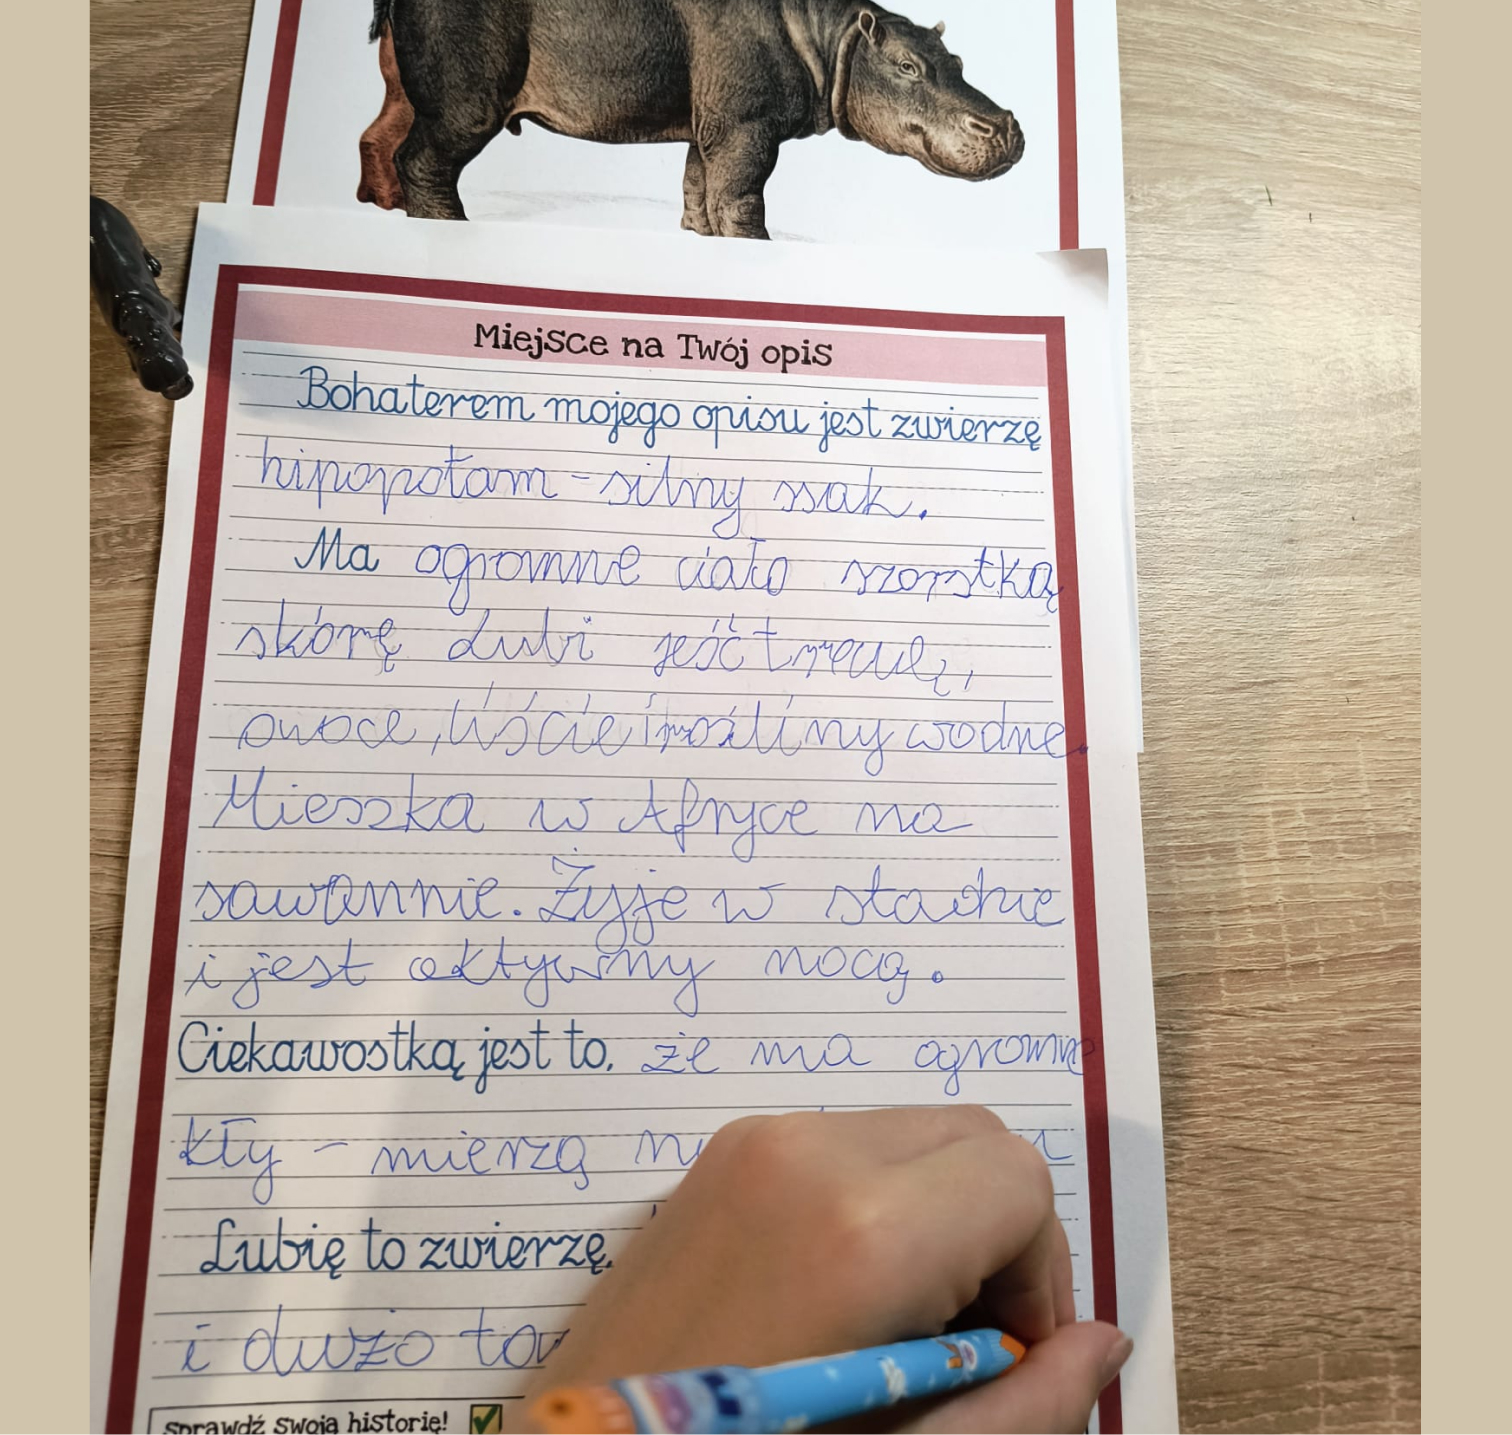 Miejsce na Twój opis
Bohaterem mojego opisu jest zwierzę
hipopotam - silny ssak.
Ma ogromne ciało szorstką
skórę Lubi jeść trawę,
owoce, liście i rośliny wodne.
Mieszka w Afryce na
sawannie. Żyje w stadzie
i jest aktywny nocą.
Ciekawostką jest to, że ma ogromne
kły - mierzą
Lubię to zwierzę,
i dużo
sprawdź swoją historię!